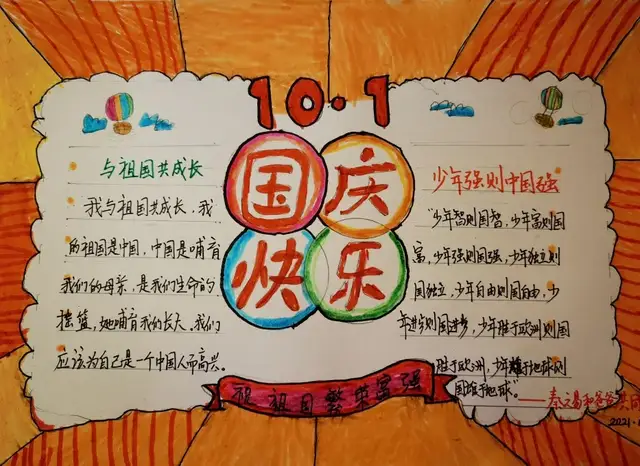 10·1
国庆
快乐
与祖国共成长
我与祖国共成长,我
的祖国是中国,中国是哺育
我们的母亲,是我们生命的
摇篮,她哺育我们长大,我们
应该为自己是一个中国人而高兴。
少年强则中国强
“少年智则国智,少年富则国
富,少年强则国强,少年独立则
国独立,少年自由则国自由,少
年进步则国进步,少年胜于欧洲则国
胜于欧洲,少年雄于地球则
国雄于地球”。
——秦之易和爸爸共同
2021.
祝祖国繁荣富强